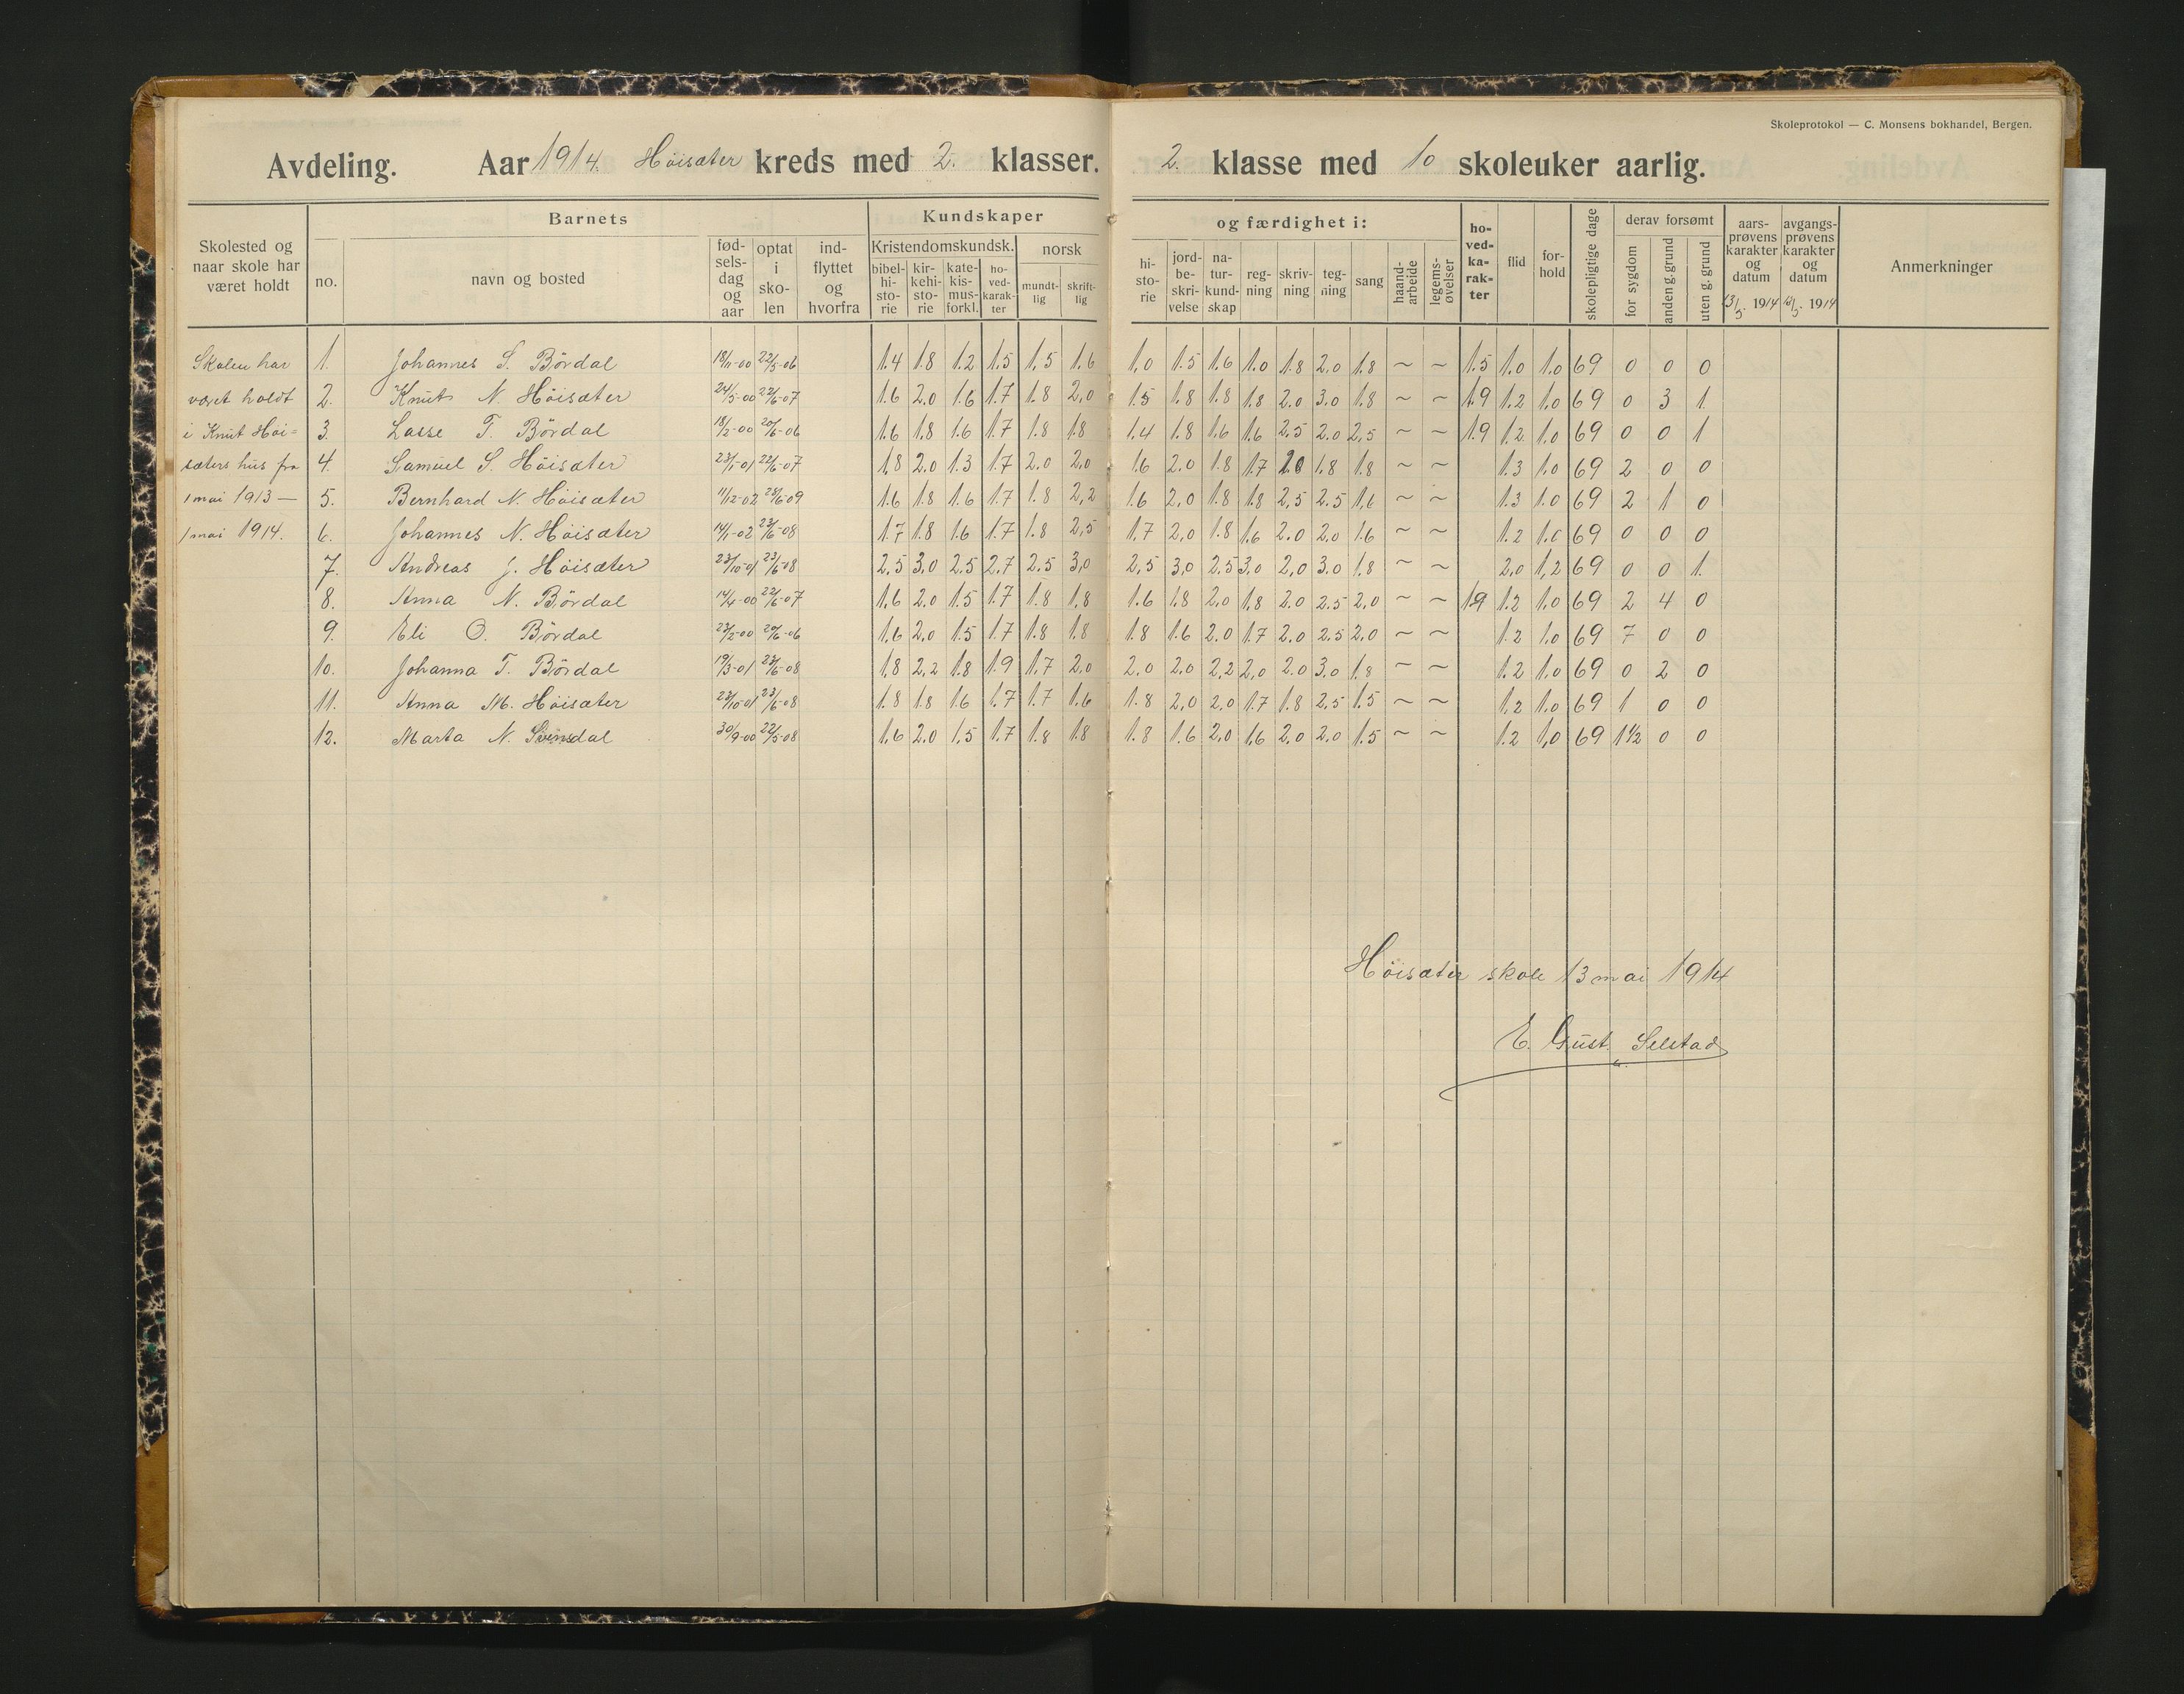 Skoleprotokol — C. Monsens bokhandel, Bergen.
Avdeling. Aar 1914. Höisæter kreds med 2. klasser. 2. klasse med 10 skoleuker aarlig.
Skolested og naar skole har været holdt
Barnets
no. navn og bosted fødselsdag og aar optat i skolen indflyttet og hvorfra
Kundskaper og færdighet i:
Kristendomskundsk. norsk
bibelhistorie kirkehistorie katekismusforkl. hovedkarakter mundtlig skriftlig
historie jordbeskrivelse naturkundskap regning skrivning tegning sang haandarbeide legemsøvelser
hovedkarakter flid forhold skolepligtige dage
derav forsømt
for sygdom anden g. grund uten g. grund
aarsprøvens karakter og datum 13/5 1914
avgangsprøvens karakter og datum 1914
Anmerkninger
Skolen har 1. Johannes S. Bördal 18/11-00 22/5-06 1.4 1.8 1.2 1.5 1,5 1.6 1,0 1.5 1.6 1.0 1.8 2.0 1.8 ~ ~ 1.5 1.0 1.0 69 0 0 0
været holdt 2. Knut N. Höisæter 24/5-00 22/6-07 1.6 2.0 1.6 1.7 1.8 2,0 1.5 1.8 1.8 1.8 2.0 3.0 1.8 ~ ~ 1.9 1.2 1.0 69 0 3 1
i Knut Höi= 3. Lasse T. Bördal 18/2-00 20/6-06 1.6 1.8 1.6 1.7 1.8 1.8 1.4 1.8 1.6 1.6 2.5 2.0 2,5 ~ ~ 1.9 1.2 1.0 69 0 0 1
sæters hus fra 4. Samuel S. Höisæter 23/1-01 22/6-07 1,8 2.0 1.3 1.7 2.0 2,0 1.6 2.0 1.8 1.7 1.8 1.8 ~ ~ 1.3 1.0 69 2 0 0
1 mai 1913 — 5. Bernhard N. Höisæter 11/12-02 23/6-09 1.6 1.8 1.6 1.7 1.8 2,2 1.6 2,0 1.8 1.8 2,5 2.5 1,6 ~ ~ 1.3 1.0 69 2 1 0
1 mai 1914. 6. Johannes N. Höisæter 14/1-02 23/6-08 1.7 1.8 1.6 1.7 1.8 2,5 1,7 2,0 1.8 1.6 2.0 2,0 1.6 ~ ~ 1.2 1.0 69 0 0 0
7. Andreas J. Höisæter 23/10-01 23/6-08 2,5 3,0 2.5 2,7 2.5 3,0 2,5 3,0 2.5 3.0 2,0 3.0 1.8 ~ ~ 2,0 1,2 69 0 0 1.
8. Anna N. Bördal 14/4-00 22/6-07 1,6 2.0 1.5 1.7 1.8 1,8 1.6 1.8 2,0 1,8 2.0 2.5 2,0 ~ ~ 1.9 1.2 1.0 69 2 4 0
9. Eli O. Bördal 23/2-00 20/6-06 1.6 2.0 1.5 1.7 1.8 1.8 1.8 1.6 2.0 1.7 2.0 2.5 2,0 ~ ~ 1.2 1.0 69 7 0 0
10. Johanna T. Bördal 19/3-01 23/6-08 1,8 2,2 1.8 1.9 1,7 2,0 2,0 2,0 2,2 2,0 2.0 3.0 1.8 ~ ~ 1.2 1.0 69 0 2 0
11. Anna M. Höisæter 23/10-01 23/6-08 1.8 1.8 1.6 1,7 1.7 1.6 1.8 2,0 2,0 1.7 1.8 2,5 1.5 ~ ~ 1.2 1.0 69 1 0 0
12. Marta N. Svensdal 30/9-00 22/5-08 1,6 2.0 1,5 1.7 1.8 1.8 1.8 1.6 2,0 1,6 2.0 2,0 1.5 ~ ~ 1.2 1,0 69 1 1/2 0 0
Höisæter skole 13 mai 1914
E. Gust. Selstad